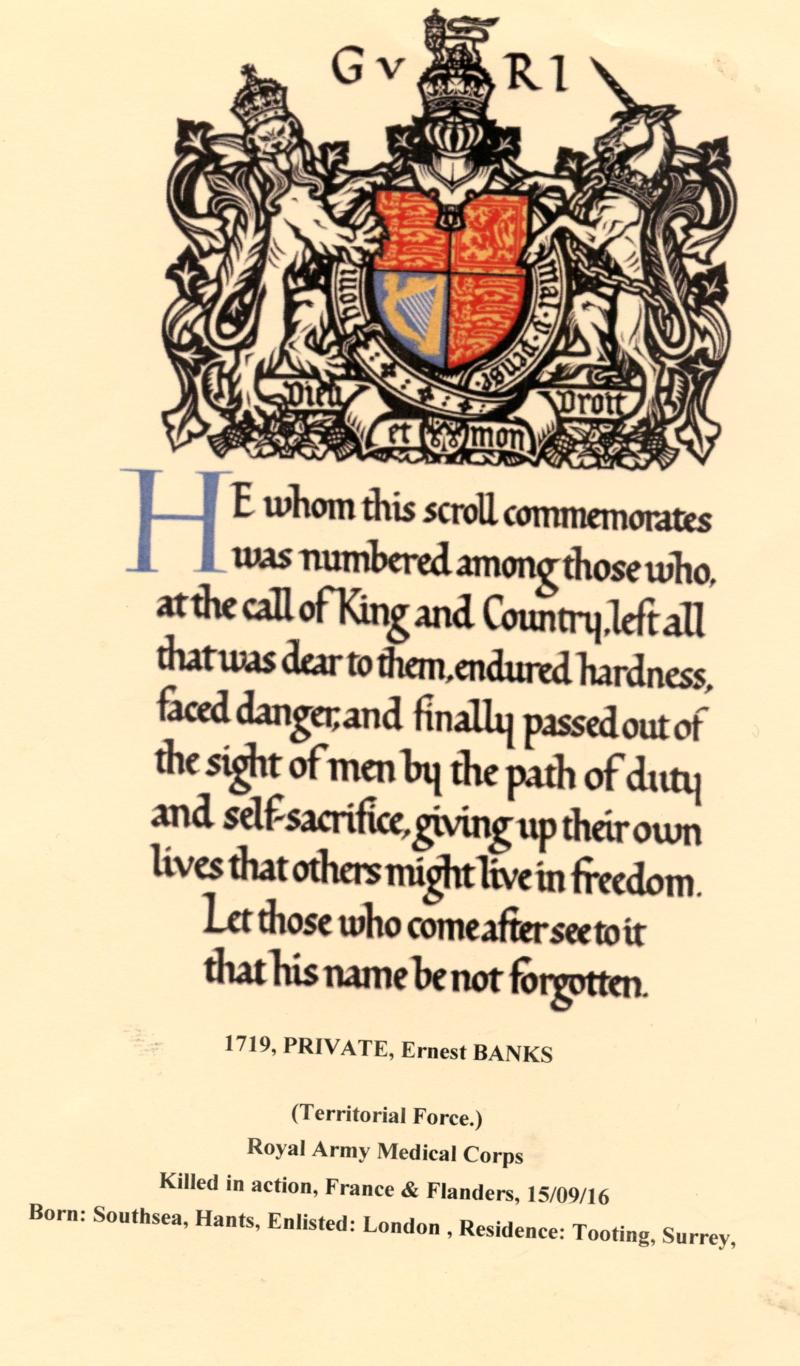 G V RI
honi
mal·y·pense
Dieu et mon Droit
HE whom this scroll commemorates
was numbered among those who,
at the call of King and Country, left all
that was dear to them, endured hardness,
faced danger, and finally passed out of
the sight of men by the path of duty
and self-sacrifice, giving up their own
lives that others might live in freedom.
Let those who come after see to it
that his name be not forgotten.
1719, PRIVATE, Ernest BANKS
(Territorial Force.)
Royal Army Medical Corps
Killed in action, France & Flanders, 15/09/16
Born: Southsea, Hants, Enlisted: London , Residence: Tooting, Surrey,